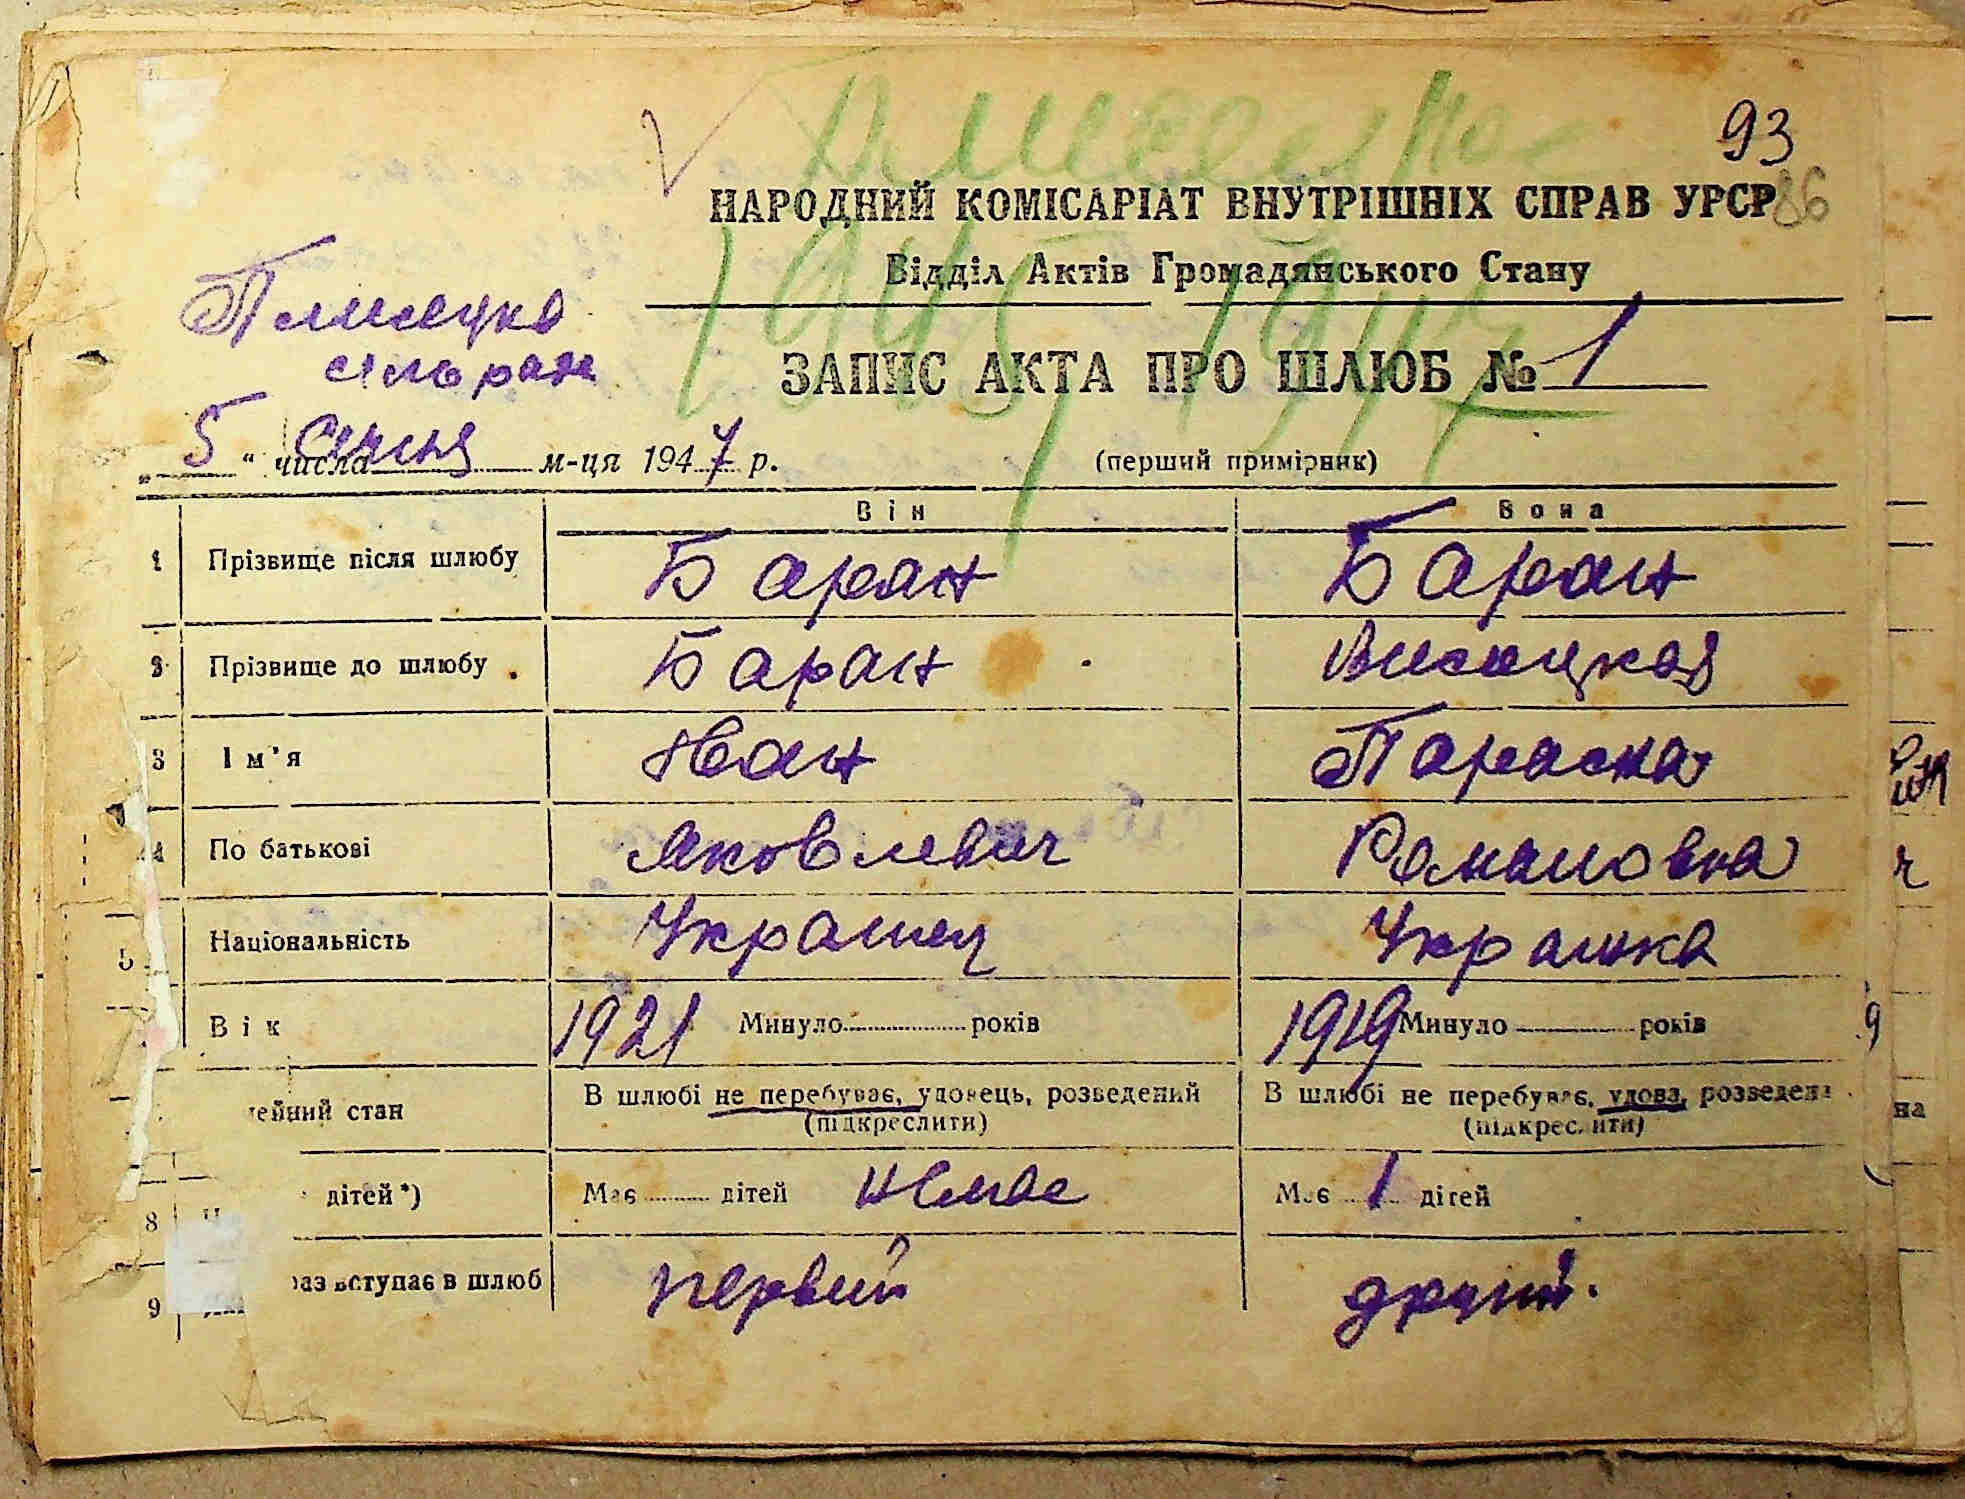 93
НАРОДНИЙ КОМІСАРІАТ ВНУТРІШНІХ СПРАВ УРСР
86
Відділ Актів Громадянського Стану
1945 1947
ЗАПИС АКТА ПРО ШЛЮБ № 1
„ 5 “ числа Січня м-ця 1947 р. (перший примірник)
Він Вона
1 Прізвище після шлюбу Баран Баран
2 Прізвище до шлюбу Баран Висоцкая
3 Ім'я Иван Параска
4 По батькові Яковлевич Романовна
5 Національність Украинец Украинка
Вік 1921 Минуло років 1919 Минуло років
ейний стан В шлюбі не перебуває, удовець, розведений (підкреслити) В шлюбі не перебуває, удова, розведена (підкреслити)
8 дітей*) Має дітей немае Має 1 дітей
9 раз вступає в шлюб первий другий.